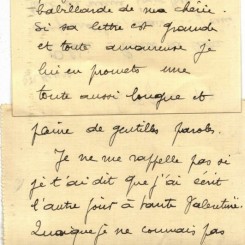 babillarde de ma chérie.
Si sa lettre est grande
et toute amoureuse je
lui en promets une
toute aussi longue et
pleine de gentilles paroles.
Je ne me rappelle pas si
je t'ai dit que j'ai écrit
l'autre jour à tante Valentine.
Quoique je ne connais pas